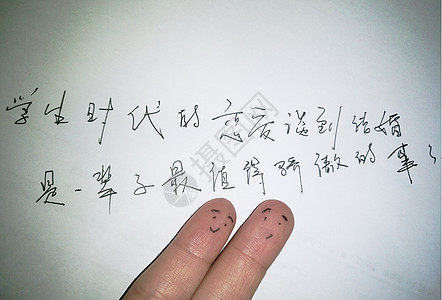 学生时代的恋爱谈到结婚
是一辈子最值得骄傲的事了